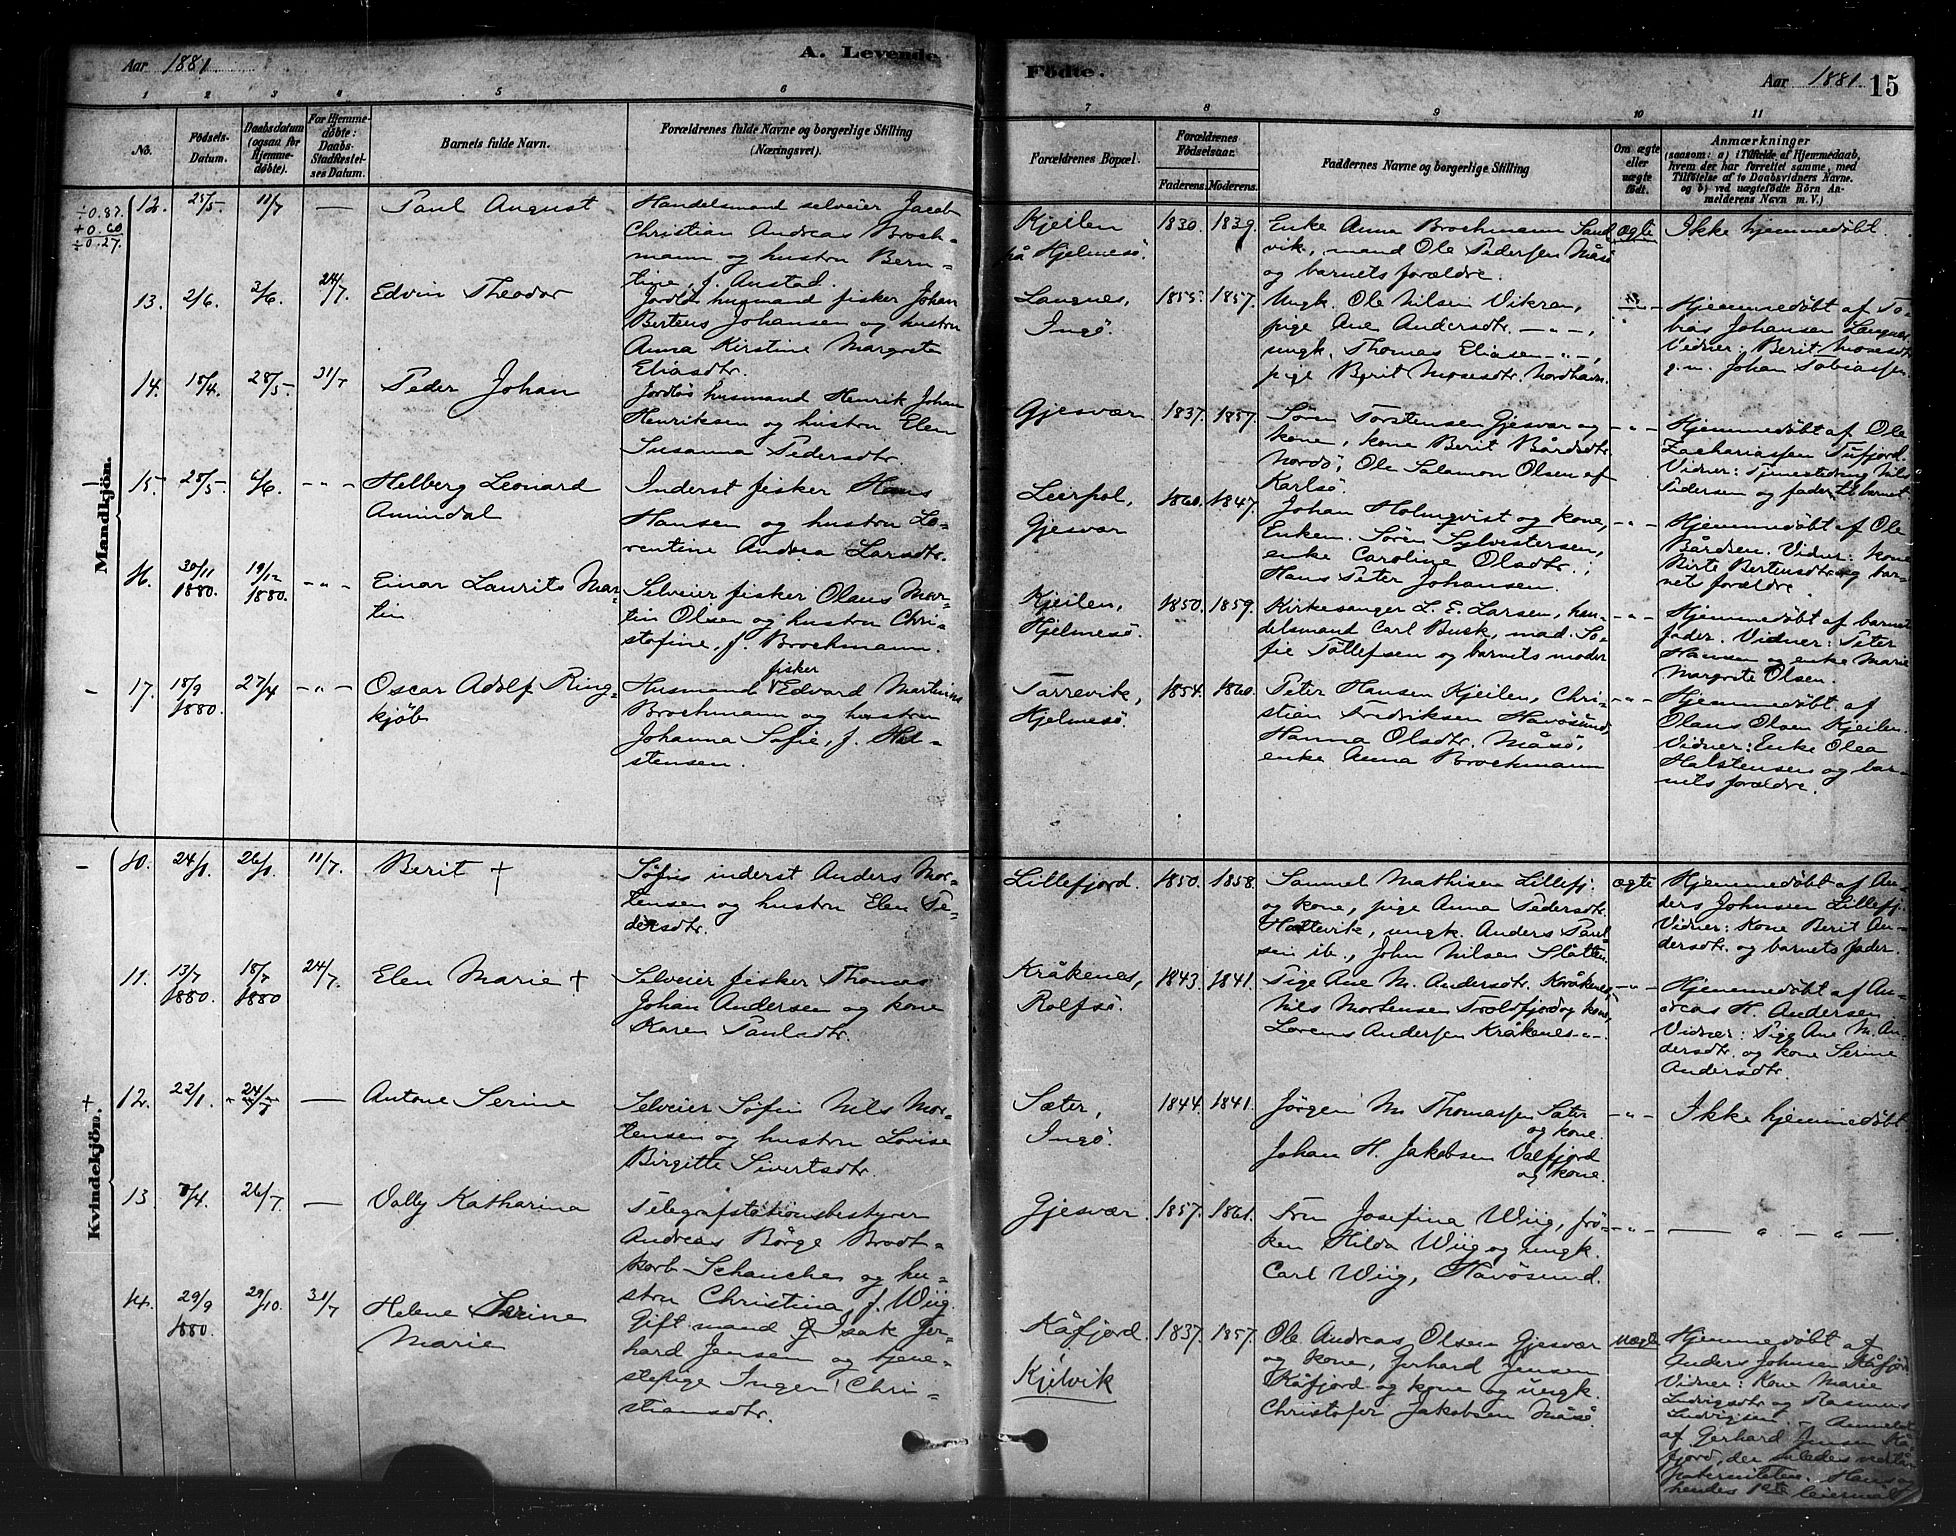 Aar 1881
A. Levende
Födte.
Aar 1881
15
1 2 3 4 5 6 7 8 9 10 11
No.
Födsels-
Datum.
Daabsdatum
(ogsaa for
Hjemme-
döbte).
For Hjemme-
döbte:
Daabs-
Stadfæstel-
ses Datum.
Barnets fulde Navn.
Forældrenes fulde Navne og borgerlige Stilling
(Næringsvei).
Forældrenes Bopæl.
Forældrenes
Födselsaar.
Faderens. Moderens.
Faddernes Navne og borgerlige Stilling
Om ægte
eller
uægte
födt.
Anmærkninger
(saasom: a) i Tilfælde af Hjemmedaab,
hvem der har forrettet samme, med
Tilföielse af to Daabsvidners Navne.
og b) ved uægtefödte Börn An-
melderens Navn m. V.)
÷0.87.
+0.60
÷0.27.
Mandkjön.
12. 25/5. 11/7 —
Paul August
Handelsmand selveier Jacob
Christian Andreas Broch-
mann og hustru Bern-
tine, f. Anstad.
Kjeilen
på Hjelmesö.
1830. 1839.
Enke Anna Brochmann Sand
vik, mand Ole Pedersen Måsö
og barnets forældre.
Ægte
Ikke hjemmedöbt.
13. 2/6. 3/6. 24/7.
Edvin Theodor
Jordlös husmand fisker Johan
Bertens Johansen og hustru
Anna Kirstine Margrete
Eliasdtr.
Langnes,
Ingö.
1855. 1857.
Ungk. Ole Nilsen Vikran,
pige Ane Andersdtr. — " —,
ungk. Thomas Eliasen — " —,
pige Berit Mosesdtr. Nordhavn.
Hjemmedöbt af To-
bias Johansen Langnes.
Vidner: Berit Mosesdtr
g. m. Johan Tobiassen.
14. 15/4. 28/5. 31/7
Peder Johan
Jordlös husmand Henrik Johan
Henriksen og hustru Elen
Susanna Pedersdtr.
Gjesvær
1837. 1857.
Sören Torstensen Gjesvær og
kone, kone Berit Bårdsdtr
Nordö, Ole Salamon Olsen af
Karlsö.
— " —
Hjemmedöbt af Ole
Zachariassen Tufjord.
Vidner: Tjenestedreng Nils
Pedersen og fader til barnet
15. 28/5. 6/6. — " —
Helberg Leonard
Amindal
Inderst fisker Hans
Hansen og hustru La-
rentine Andrea Larsdtr.
Leirpol,
Gjesvær
1860. 1847.
Johan Holmqvist og kone,
Enkem. Sören Sylvestersen,
enke Caroline Olsdtr.,
Hans Peter Johansen.
— " —
Hjemmedöbt af Ole
Bårdsen. Vidner: kone
Birte Bertensdtr og bar-
nets forældre.
16. 30/11 1880. 19/12 1880. — " —
Einar Laurits Mar-
tin
Selveier fisker Olaus Mar-
tin Olsen og hustru Chri-
stofine, f. Brochmann.
Kjeilen,
Hjelmesö.
1850. 1859.
Kirkesanger L. E. Larsen, han-
delsmand Carl Busk, mad. So-
fie Tollefsen og barnets moder
— " —
Hjemmedöbt af barnets
fader. Vidner: Peter
Hansen og enke Marie
Margrete Olsen.
17. 18/9 1880. 27/4 — " —
Oscar Adolf Ring-
kjöb
Husmand fisker Edvard Martinus
Brochmann og hustru
Johanna Sofie, f. Hal-
stensen.
Tarrevik,
Hjelmesö.
1854. 1860.
Peter Hansen Kjeilen, Chri-
stian Fredriksen Havösund,
Hanna Olsdtr. Måsö,
enke Anna Brochmann
— " —
Hjemmedöbt af
Olaus Olsen Kjeilen.
Vidner: Enke Olea
Halstensen og bar-
nets forældre.
Kvindekjön.
10. 24/1. 26/1. 11/7.
Berit †
Söfin inderst Anders Mor-
tensen og hustru Elen Pe-
dersdtr.
Lillefjord.
1850. 1858.
Samuel Mathisen Lillefj.
og kone, pige Anna Pedersdtr.
Hattevik, ungk. Anders Paul-
sen ib., John Nilsen Slåtten.
Ægte
Hjemmedöbt af An-
ders Johnsen Lillefj.
Vidner: Kone Berit An-
dersdtr. og barnets fader.
11. 13/7 1880. 18/7 1880 24/7.
Elen Marie †
Selveier fisker Thomas
Johan Andersen og kone
Karen Paulsdtr.
Kråkenes,
Rolfsö.
1843. 1841.
Pige Ane M. Andersdtr. Kråkenes,
Nils Mortensen Troldfjord og kone,
Lorens Andersen Kråkenes — " —
— " —
Hjemmedöbt af An-
dreas H. Andersen
Vidner: Pige Ane M. An-
dersdtr. og kone Serine
Andersdtr.
12. 22/1. 24/7 —
Antone Serine
Selveier Söfin Nils Mor-
tensen og hustru Lovise
Birgitte Sivertsdtr.
Sæter,
Ingö.
1844. 1841.
Jörgen M. Thomassen Sæter
og kone.
Johan H. Jakobsen Valfjord
og kone.
— " —
Ikke hjemmedöbt.
13. 8/4. 26/7. —
Vally Katharina
Telegrafstationsbestyrer
Andreas Börge Brodt-
korb Schanche og hu-
stru Christina, f. Wiig.
Gjesvær.
1857. 1861.
Fru Josefina Wiig, frö-
ken Hilda Wiig og ungk.
Carl Wiig, Havösund.
— " —
— " — " —
14. 29/9 1880. 29/10. 31/7
Helene Serine
Marie
Gift mand Isak Ger-
hard Jensen og tjene-
stepige Inger Chri-
stiansdtr.
Kåfjord.
Kjelvik
1837. 1857.
Ole Andreas Olsen Gjesvær
og kone, Gerhard Jensen
Kåfjord og kone og ungk.
Christofer Jakobsen Måsö.
Uægte
Hjemmedöbt af
Anders Johnsen Kåfjord.
Vidner: Kone Marie
Ludvigsdtr og Rasmus
Ludvigsen. Anmeldt
af Gerhard Jensen Kå-
fjord, der
paterniteten. Hans og
hendes 1ste leiermål